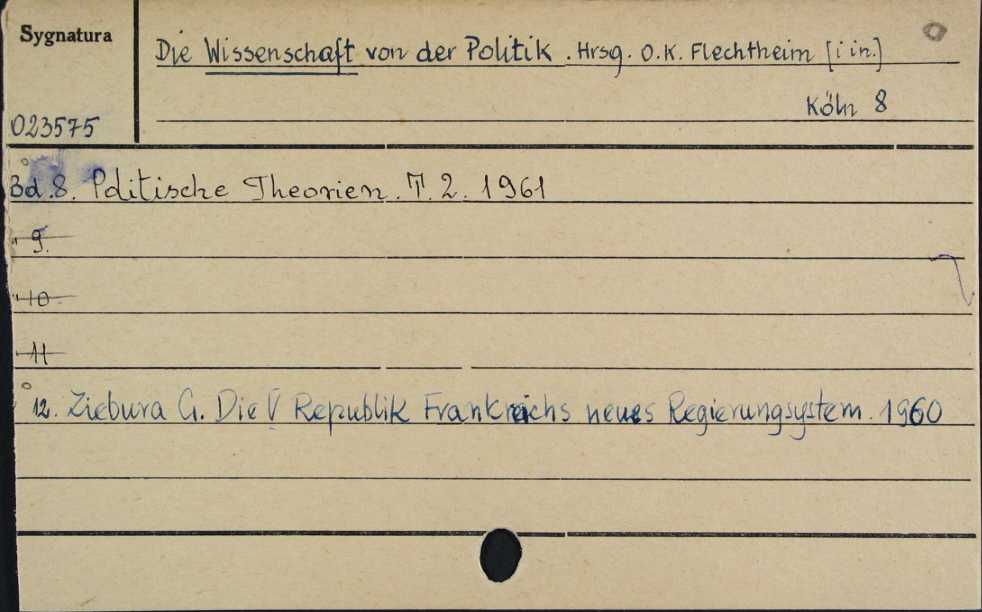 Sygnatura
Die Wissenschaft von der Politik. Hrsg. O.K. Flechtheim [i in.]
Köln 8
023575
Bd. 8. Politische Theorien. T. 2. 1961
" 9.
" 10.
" 11
12. Ziebura G. Die V Republik Frankreichs neues Regierungsystem. 1960